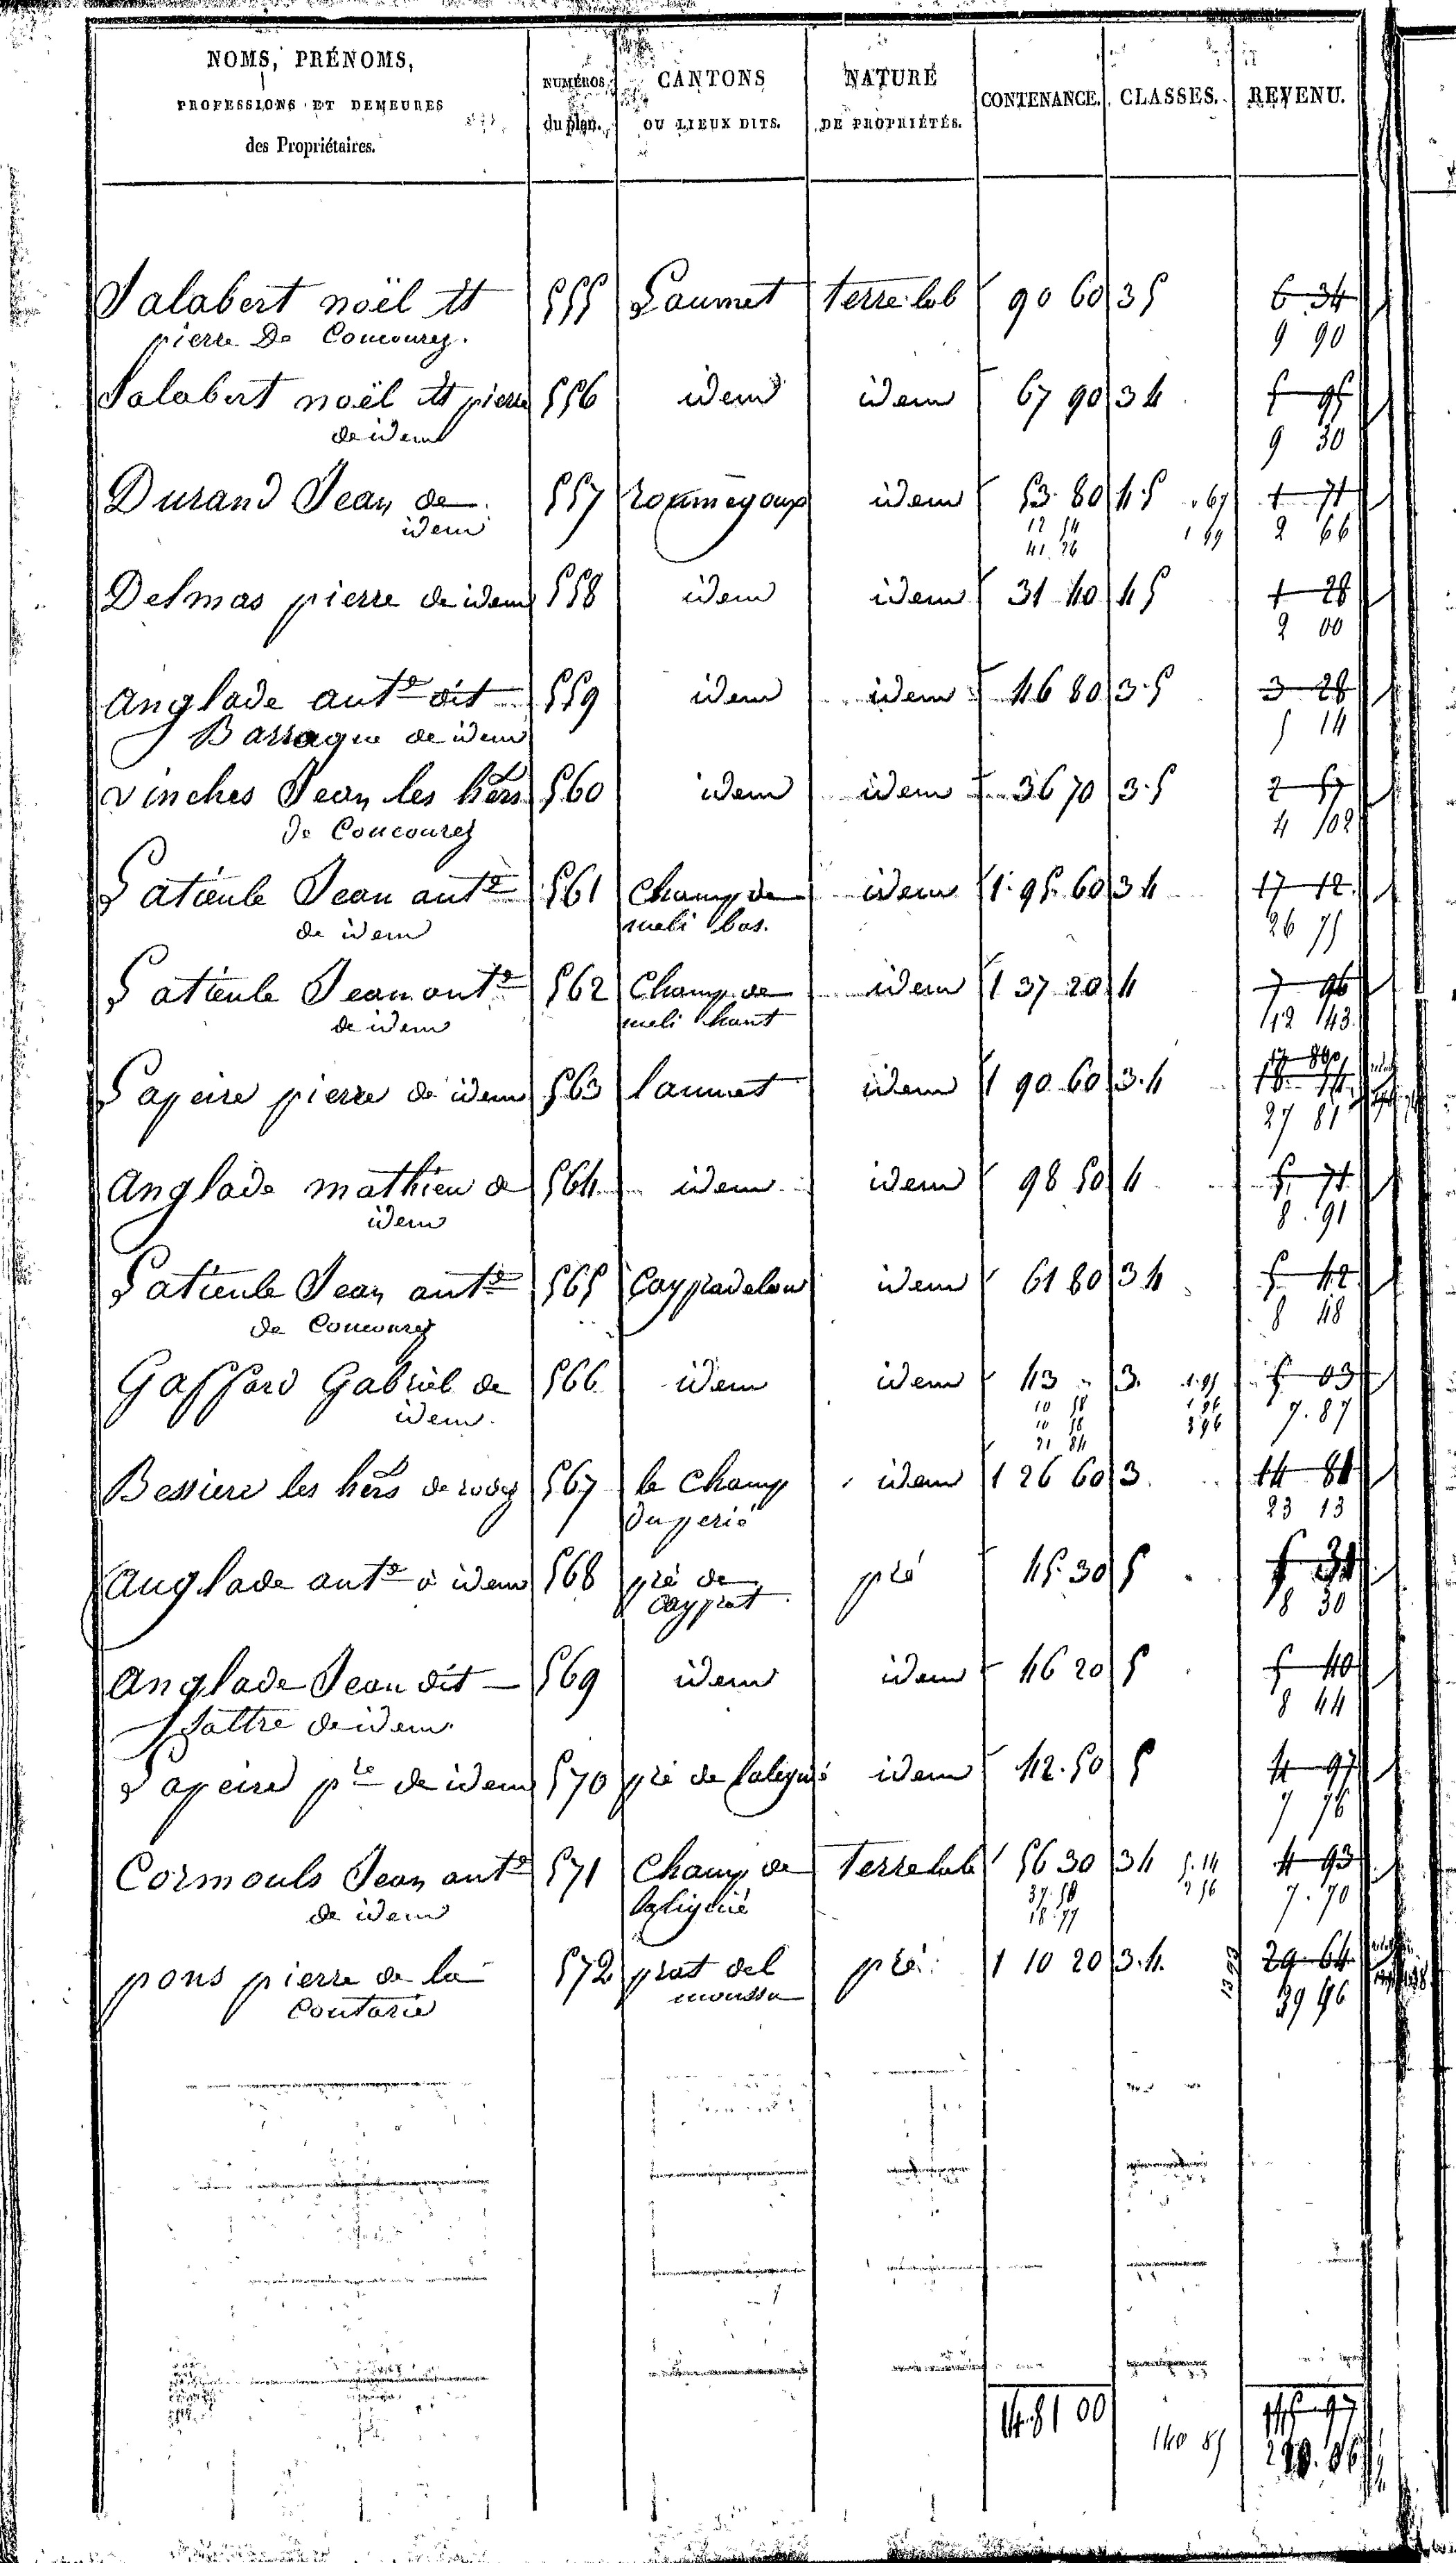 NOMS, PRÉNOMS,
PROFESSIONS ET DEMEURES
des Propriétaires.
NUMÉROS
du plan.
CANTONS
OU LIEUX DITS.
NATURE
DE PROPRIÉTÉS.
CONTENANCE.
CLASSES.
REVENU.
Salabert noël et 555 Laumet terre lab 90 60 35 6 34
pierre De Concourez. 9 90
Salabert noël et pierre 556 idem idem 67 90 34 5 95
de idem 9 30
Durand Jean de 557 idem 53 80 4.5 67 1 71
idem 12 54 1 99 2 66
41 26
Delmas pierre de idem 558 idem idem 31 40 45 1 28
2 00
Anglade ant.e dit 559 idem idem 46 80 3.5 3 28
Barraque de idem 5 14
vinches Jean les hers 560 idem idem 36 70 3.5 2 57
de Concourez 4 02
Latieule Jean ant.e 561 Champ de idem 1 95 60 34 17 12
de idem meli bas. 26 75
Latieule Jean ant.e 562 Champ de idem 1 37 20 4 7 96
de idem meli haut 12 43
Lapeire pierre de idem 563 laumet idem 1 90 60 3.4
27 81
Anglade mathieu de 564 idem idem 98 50 4 5 71
idem 8 91
Latieule Jean ant.e 565 idem 61 80 34 5 42
de Concourez 8 48
Gaffard Gabriel de 566 idem idem 43 " 3. 1.95 5 03
idem. 10 58 1 96 7.87
10 58 3 96
21 84
Bessiere les hers de rodez 567 le Champ idem 1 26 60 3. 14 81
du perié 23 13
Anglade ant.e d idem 568 pré de pré 45.30 5
cayprat 8 30
Anglade Jean dit 569 idem idem 46 20 5 5 40
de idem. 8 44
Lapeire p.re de idem 570 pré de idem 42.50 5 4 97
7 76
Cormouls Jean ant.e 571 Champ de Terre lab 56 30 34 5.14 4 93
de idem 37.53 2 56 7.70
18.77
pons pierre de la 572 prat del pré 1 10 20 3.4. 13 93 29 64
Contarie moussu
14.81 00
140 85